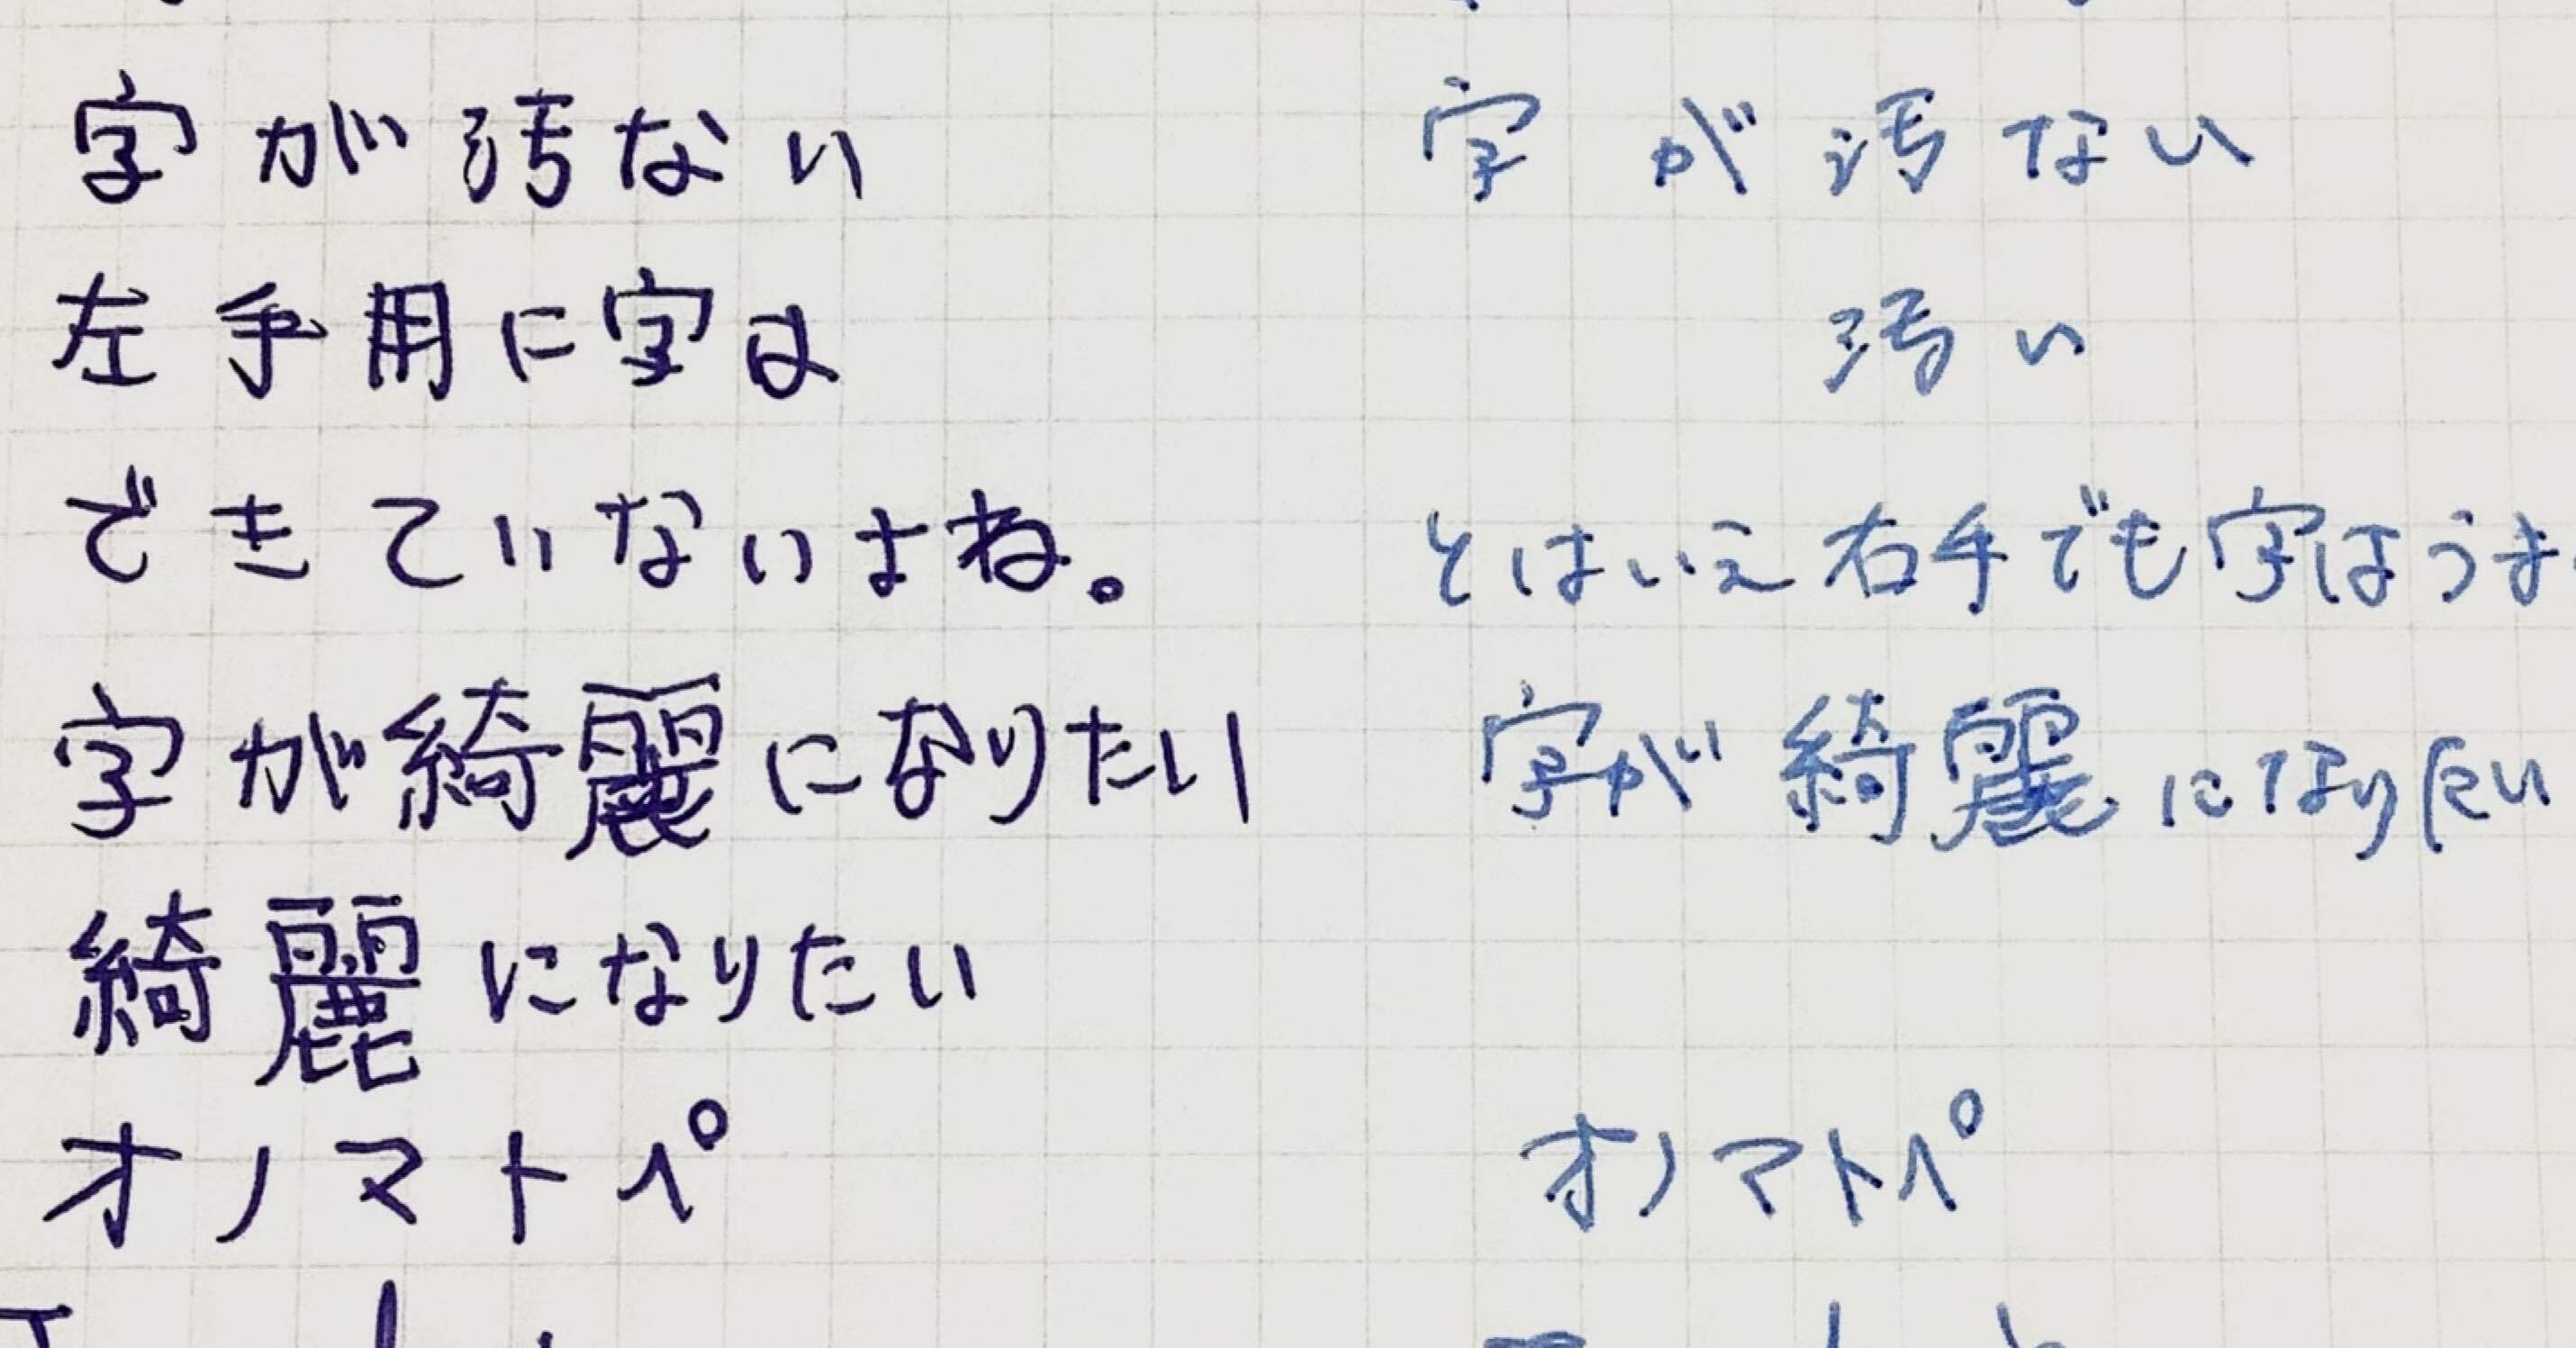 字が汚ない
左手用に字は
できていないよね。
字が綺麗になりたい
綺麗になりたい
オノマトペ
字が汚ない
汚い
とはいえ右手でも字はうま
字が綺麗になりたい
オノマトペ